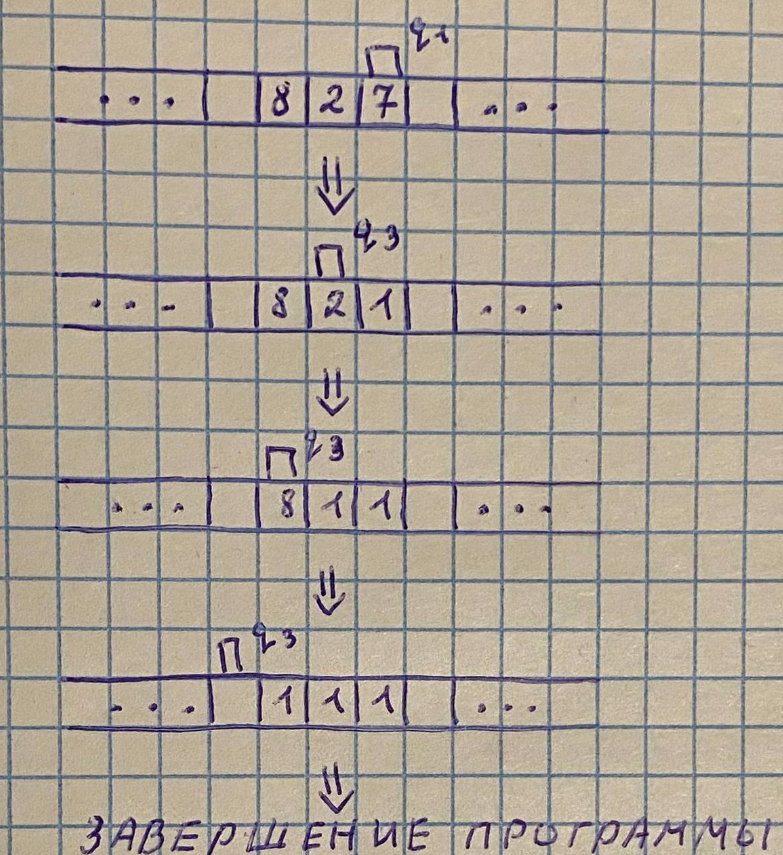 q1
... 8 2 7 ...
⇓
q3
... 8 2 1 ...
⇓
q3
... 8 1 1 ...
⇓
q3
... 1 1 1 ...
⇓
ЗАВЕРШЕНИЕ ПРОГРАММЫ